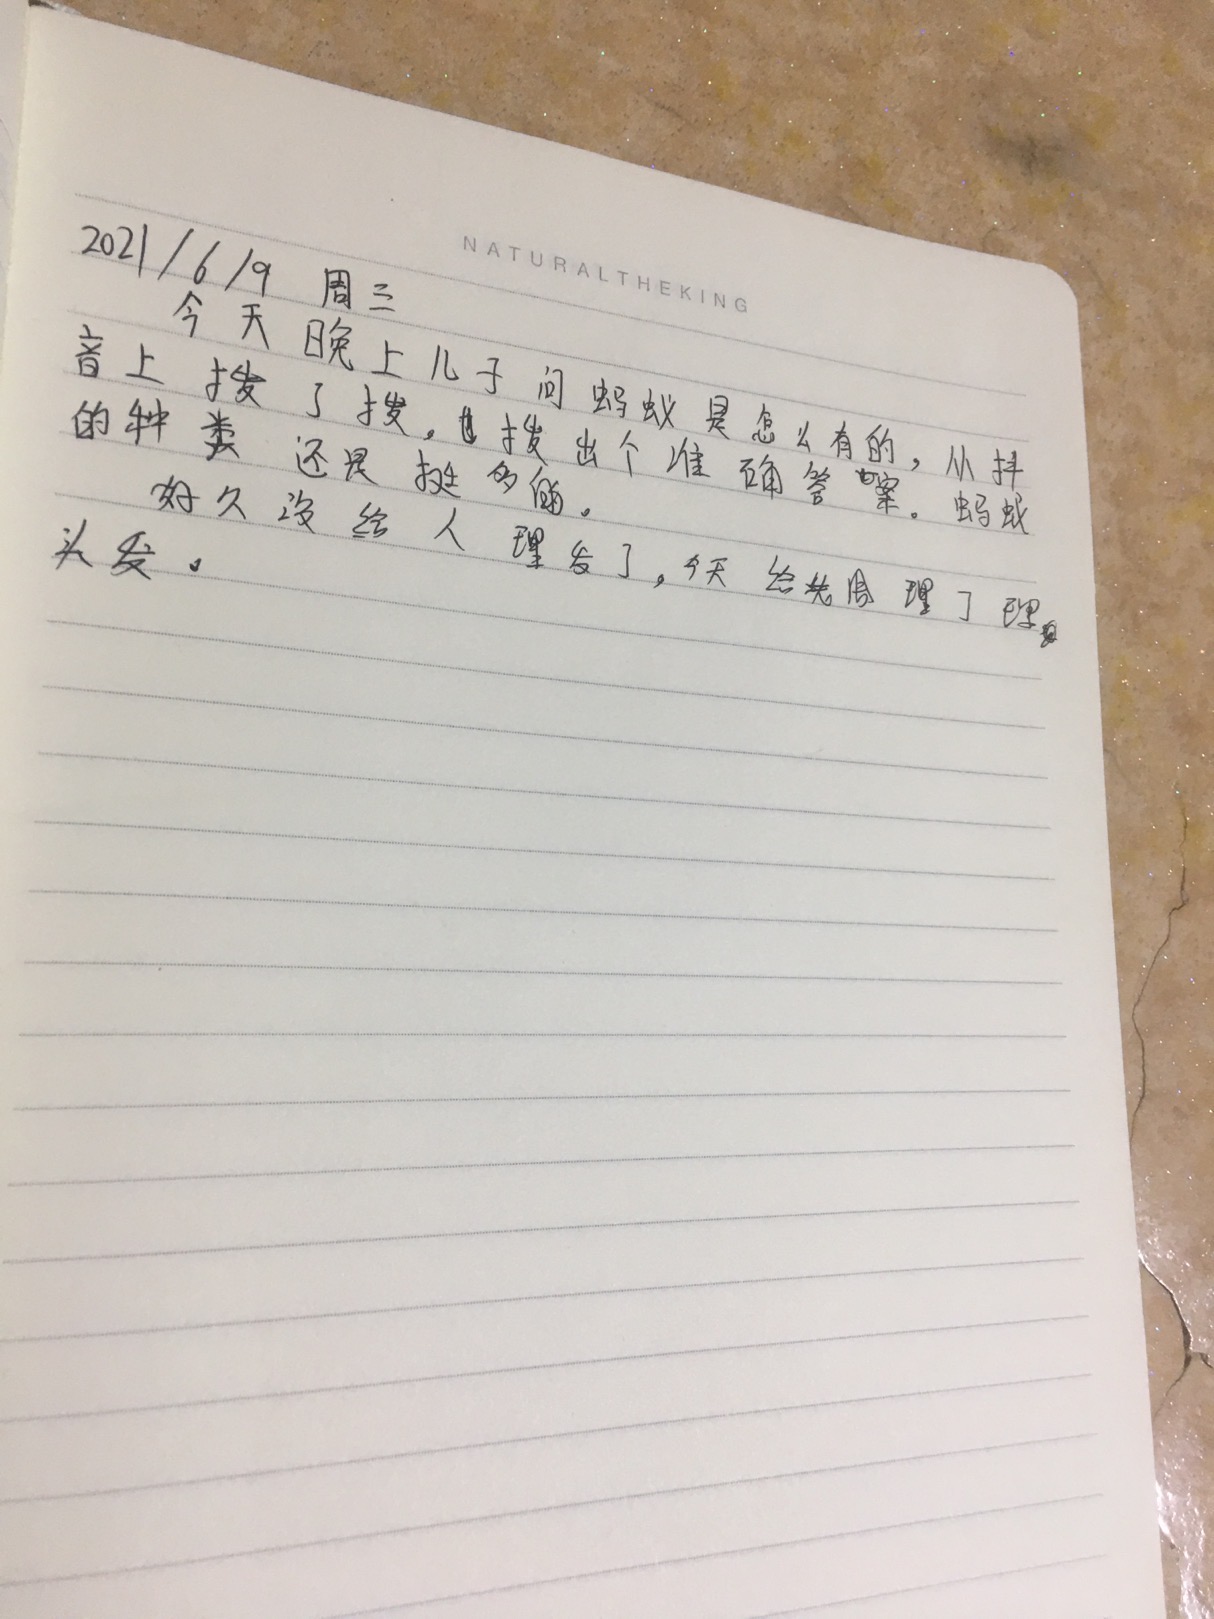 NATURALTHEKING
2021/6/9 周三
今天晚上儿子问蚂蚁是怎么有的，从抖
音上搜了搜，搜出个准确答案。蚂蚁
的种类还是挺多的。
好久没给人理发了，今天给老周理了理
头发。